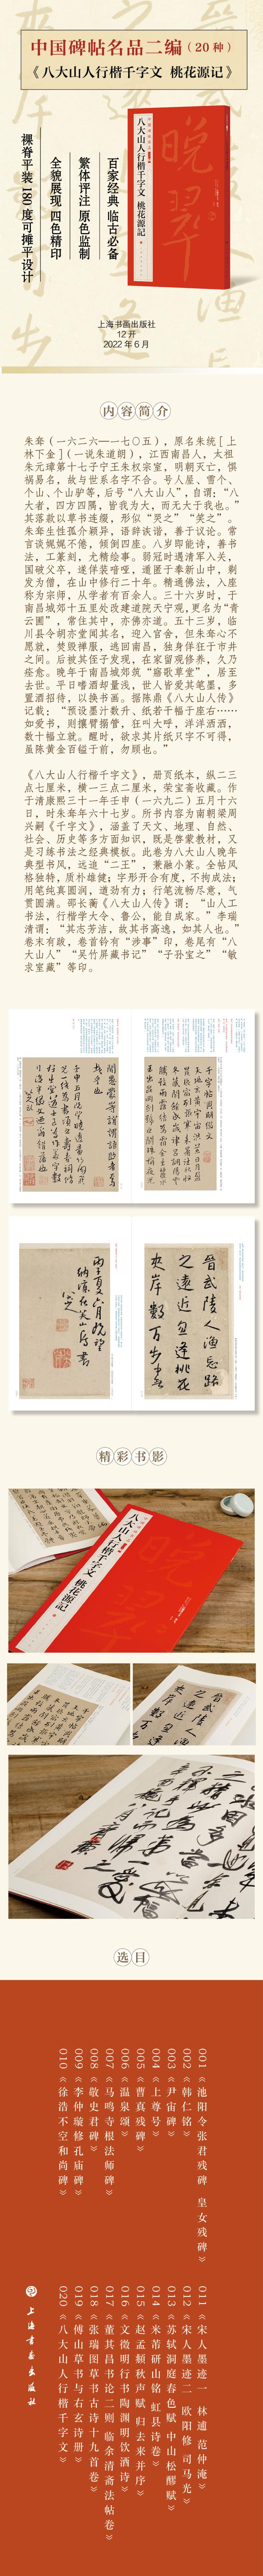 中国碑帖名品二编（20种）
《八大山人行楷千字文 桃花源记》
百家经典 临古必备
繁体评注 原色监制
全貌展现 四色精印
裸脊平装 180度可摊平设计
八大山人行楷千字文 桃花源記
晚翠
上海书画出版社
12开
2022年6月
内容简介
朱耷（一六二六——一七〇五），原名朱统［上
林下金］（一说朱道朗），江西南昌人，太祖
朱元璋第十七子宁王朱权宗室，明朝灭亡，惧
祸易名，故与世系名字不合。号人屋、雪个、
个山、个山驴等，后号“八大山人”，自谓：“八
大者，四方四隅，皆我为大，而无大于我也。”
其落款以草书连缀，形似“哭之”“笑之”。
朱耷生性孤介颖异，语辞诙谐，善于议论。常
言谈娓娓不倦，倾倒四座。八岁即能诗，善书
法，工篆刻，尤精绘事。弱冠时遇清军入关，
国破父卒，遂佯装喑哑，遁匿于奉新山中，剃
发为僧，在山中修行二十年。精通佛法，入座
称为宗师，从学者有百余人。三十六岁时，于
南昌城郊十五里处改建道院天宁观，更名为“青
云圃”，常住其中，亦佛亦道。五十三岁，临
川县令胡亦堂闻其名，迎入官舍，但朱耷心不
愿就，焚毁禅服，逃回南昌，独身佯狂于市井
之间。后被其侄子发现，在家留观修养，久乃
痊愈。晚年于南昌城郊筑“寤歌草堂”，居至
去世。平日嗜酒却量浅，世人皆爱其笔墨，多
置酒招待，以换书画。据陈鼎《八大山人传》
记载：“预设墨汁数升、纸若干幅于座右……
如爱书，则攘臂搦管，狂叫大呼，洋洋洒洒，
数十幅立就。醒时，欲求其片纸只字不可得，
虽陈黄金百镒于前，勿顾也。”
《八大山人行楷千字文》，册页纸本，纵二三
点七厘米，横一三点二厘米，荣宝斋收藏。作
于清康熙三十一年壬申（一六九二）五月十六
日，时朱耷年六十七岁。所书内容为南朝梁周
兴嗣《千字文》，涵盖了天文、地理、自然、
社会、历史等多方面知识，既是启蒙教材，又
是习练书法之经典模板。此卷为八大山人晚年
典型书风，远追“二王”，兼融小篆。全帖风
格独特，质朴雄健；字形开合有度，不拘成法；
用笔纯真圆润，道劲有力；行笔流畅尽意，气
贯圆满。邵长蘅《八大山人传》谓：“山人工
书法，行楷学大令、鲁公，能自成家。”李瑞
清谓：“其志芳洁，故其书高逸，如其人也。”
卷末有跋，卷首钤有“涉事”印，卷尾有“八
大山人”“吴竹屏藏书记”“子孙宝之”“敏
求室藏”等印。
晋武陵人漁忘路
之遠近忽逢桃花
夾岸數百步
精彩书影
八大山人行楷千字文 桃花源記
选目
001《池阳令张君残碑 皇女残碑》
002《韩仁铭》
003《尹宙碑》
004《上尊号》
005《曹真残碑》
006《温泉颂》
007《马鸣寺根法师碑》
008《敬史君碑》
009《李仲璇修孔庙碑》
010《徐浩不空和尚碑》
011《宋人墨迹一 林逋 范仲淹》
012《宋人墨迹二 欧阳修 司马光》
013《苏轼洞庭春色赋 中山松醪赋》
014《米芾研山铭 虹县诗卷》
015《赵孟頫秋声赋 归去来并序》
016《文徵明行书陶渊明饮酒诗》
017《董其昌书论二则 临余清斋法帖卷》
018《张瑞图草书古诗十九首卷》
019《傅山草书与右玄诗册》
020《八大山人行楷千字文》
上海书画出版社